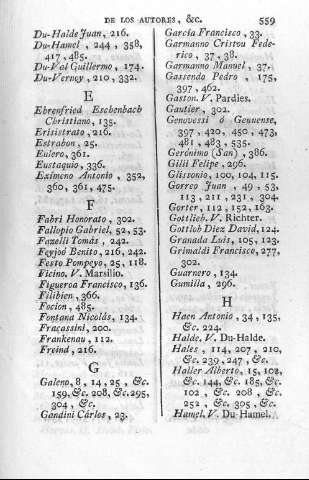 DE LOS AUTORES, &c. 559
Du-Halde Juan, 216.
Du-Hamel, 244, 358,
417, 485.
Du-Val Guillermo, 174.
Du-Verney, 210, 332.
E
Ehrenfried Eschenbach
Christiano, 135.
Erisistrato, 216.
Estrabon, 25.
Eulero, 361.
Eustaquio, 336.
Eximeno Antonio, 352,
360, 361, 475.
F
Fabri Honorato, 302.
Fallopio Gabriel, 52, 53.
Fazelli Tomás, 242.
Feyjoó Benito, 216, 242.
Festo Pompeyo, 25, 118.
Ficino, V. Marsilio.
Figueroa Francisco, 136.
Filibien, 366.
Focion, 485.
Fontana Nicolás, 134.
Fracassini, 200.
Frankenau, 112.
Freind, 216.
G
Galeno, 8, 14, 25, &c.
159, &c. 208, &c. 295,
304, &c.
Gandini Cárlos, 23.
García Francisco, 33.
Garmanno Cristou Fede-
rico, 37, 38.
Garmanno Manuel, 37.
Gassendo Pedro, 175,
397, 462.
Gaston. V. Pardies.
Gautier, 302.
Genovessi ó Genuense,
397, 420, 450, 473,
481, 483, 535.
Gerónimo (San), 386.
Gilii Felipe, 296.
Glissonio, 100, 104, 115.
Gorreo Juan, 49, 53,
113, 211, 231, 304.
Gorter, 112, 152, 163.
Gottlieb. V. Richter.
Gottlob Diez David, 124.
Granada Luis, 105, 123.
Grimaldi Francisco, 277,
302.
Guarnero, 134.
Gumilla, 296.
H
Haen Antonio, 34, 135,
&c. 224.
Halde. V. Du-Halde.
Hales, 114, 207, 210,
&c. 239, 247, &c.
Haller Alberto, 15, 108,
&c. 144, &c. 185, &c.
102, &c. 208, &c.
252, &c. 305, &c.
Hamel. V. Du-Hamel.